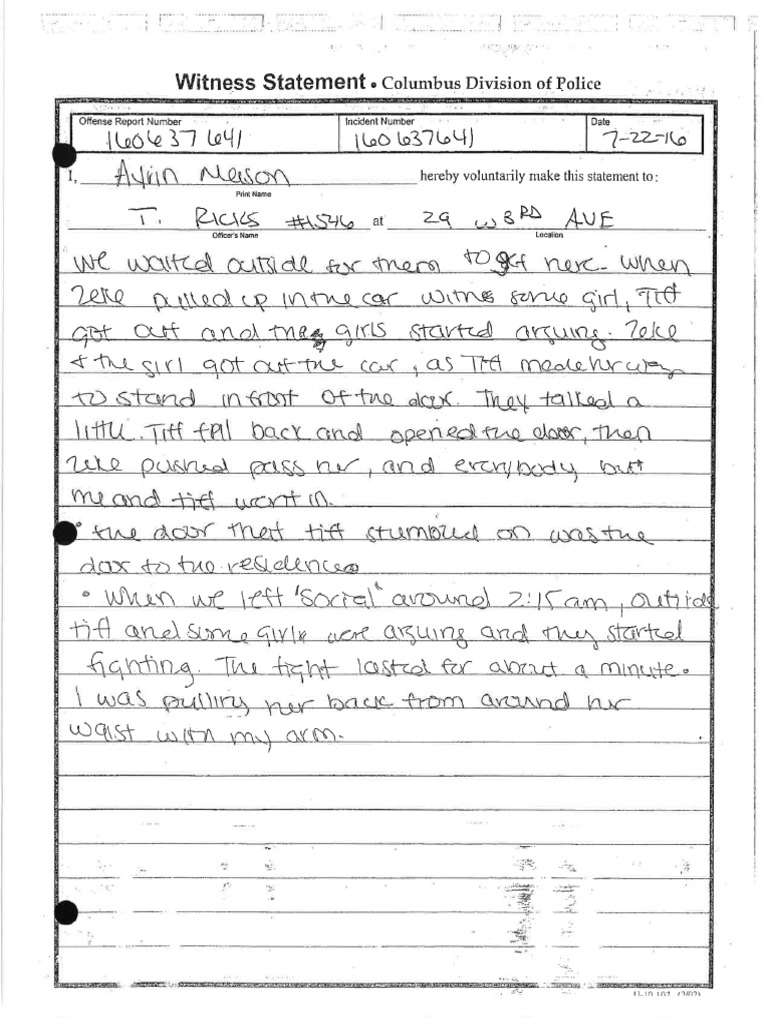 Witness Statement • Columbus Division of Police
Offense Report Number Incident Number Date
160637641 160637641 7-22-16
I, Ayrin Mason hereby voluntarily make this statement to:
Print Name
T. RICKS #1546 at 29 W 3RD AVE
Officer's Name Location
We waited outside for them to get here. When
Zeke pulled up in the car with some girl, Tiff
got out and the girls started arguing. Zeke
+ the girl got out the car, as Tiff made her way
to stand in front of the door. They talked a
little. Tiff fell back and opened the door, then
Zeke pushed pass her, and everybody but
me and tiff went in.
• the door that tiff stumbled on was the
door to the residence
• When we left "Social" around 2:15am, outside
tiff and some girls were arguing and they started
fighting. The fight lasted for about a minute.
I was pulling her back from around her
waist with my arm.